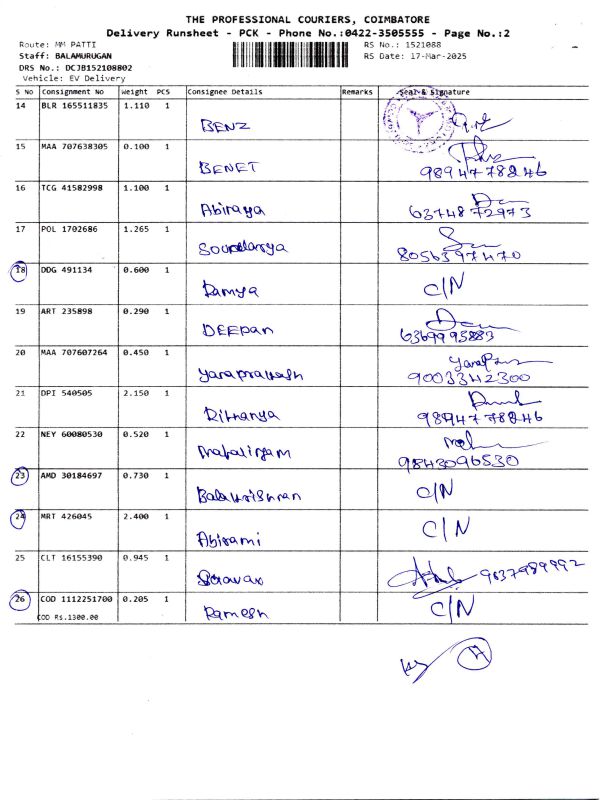 THE PROFESSIONAL COURIERS, COIMBATORE
Delivery Runsheet - PCK - Phone No.:0422-3505555 - Page No.:2
Route: MM PATTI RS No.: 1521088
Staff: BALAMURUGAN RS Date: 17-Mar-2025
DRS No.: DCJB152108802
Vehicle: EV Delivery
S No Consignment No Weight PCS Consignee Details Remarks Seal & Signature
14 BLR 165511835 1.110 1
BENZ
15 MAA 707638305 0.100 1
BENET 9894778246
16 TCG 41582998 1.100 1
Abiraya 6374872973
17 POL 1702686 1.265 1
Soundarya 8056397470
18 DDG 491134 0.600 1
Ramya C/N
19 ART 235898 0.290 1
DEEPan 6369995883
20 MAA 707607264 0.450 1
Yaraprakash 9003342300
21 DPI 540505 2.150 1
Rithanya 9894778246
22 NEY 60080530 0.520 1
Mahalingam 9843096530
23 AMD 30184697 0.730 1
Balakrishnan C/N
24 MRT 426045 2.400 1
Abirami C/N
25 CLT 16155390 0.945 1
9637989992
26 COD 1112251700 0.205 1
COD Rs.1300.00 Ramesh C/N